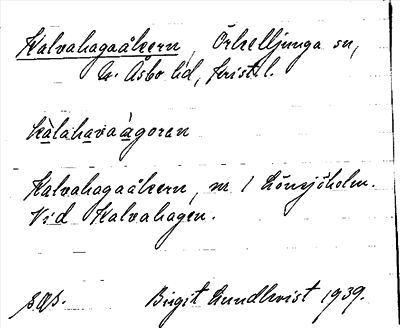 Kalvahagaåkern, Örkelljunga sn,
N. Åsbo hd, Krist. l.
kalahavaagoren
Kalvahagaåkern, m 1 Lönsjöholm.
Vid Kalvahagen.
sgs.
Birgit Lundkvist 1939.